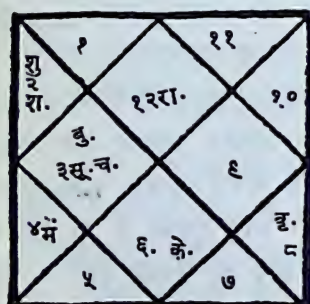 १ ११
शु
२
श.
१२रा. १०
बु.
३सू.च. ९
४मं वृ.
८
६. के.
५ ७